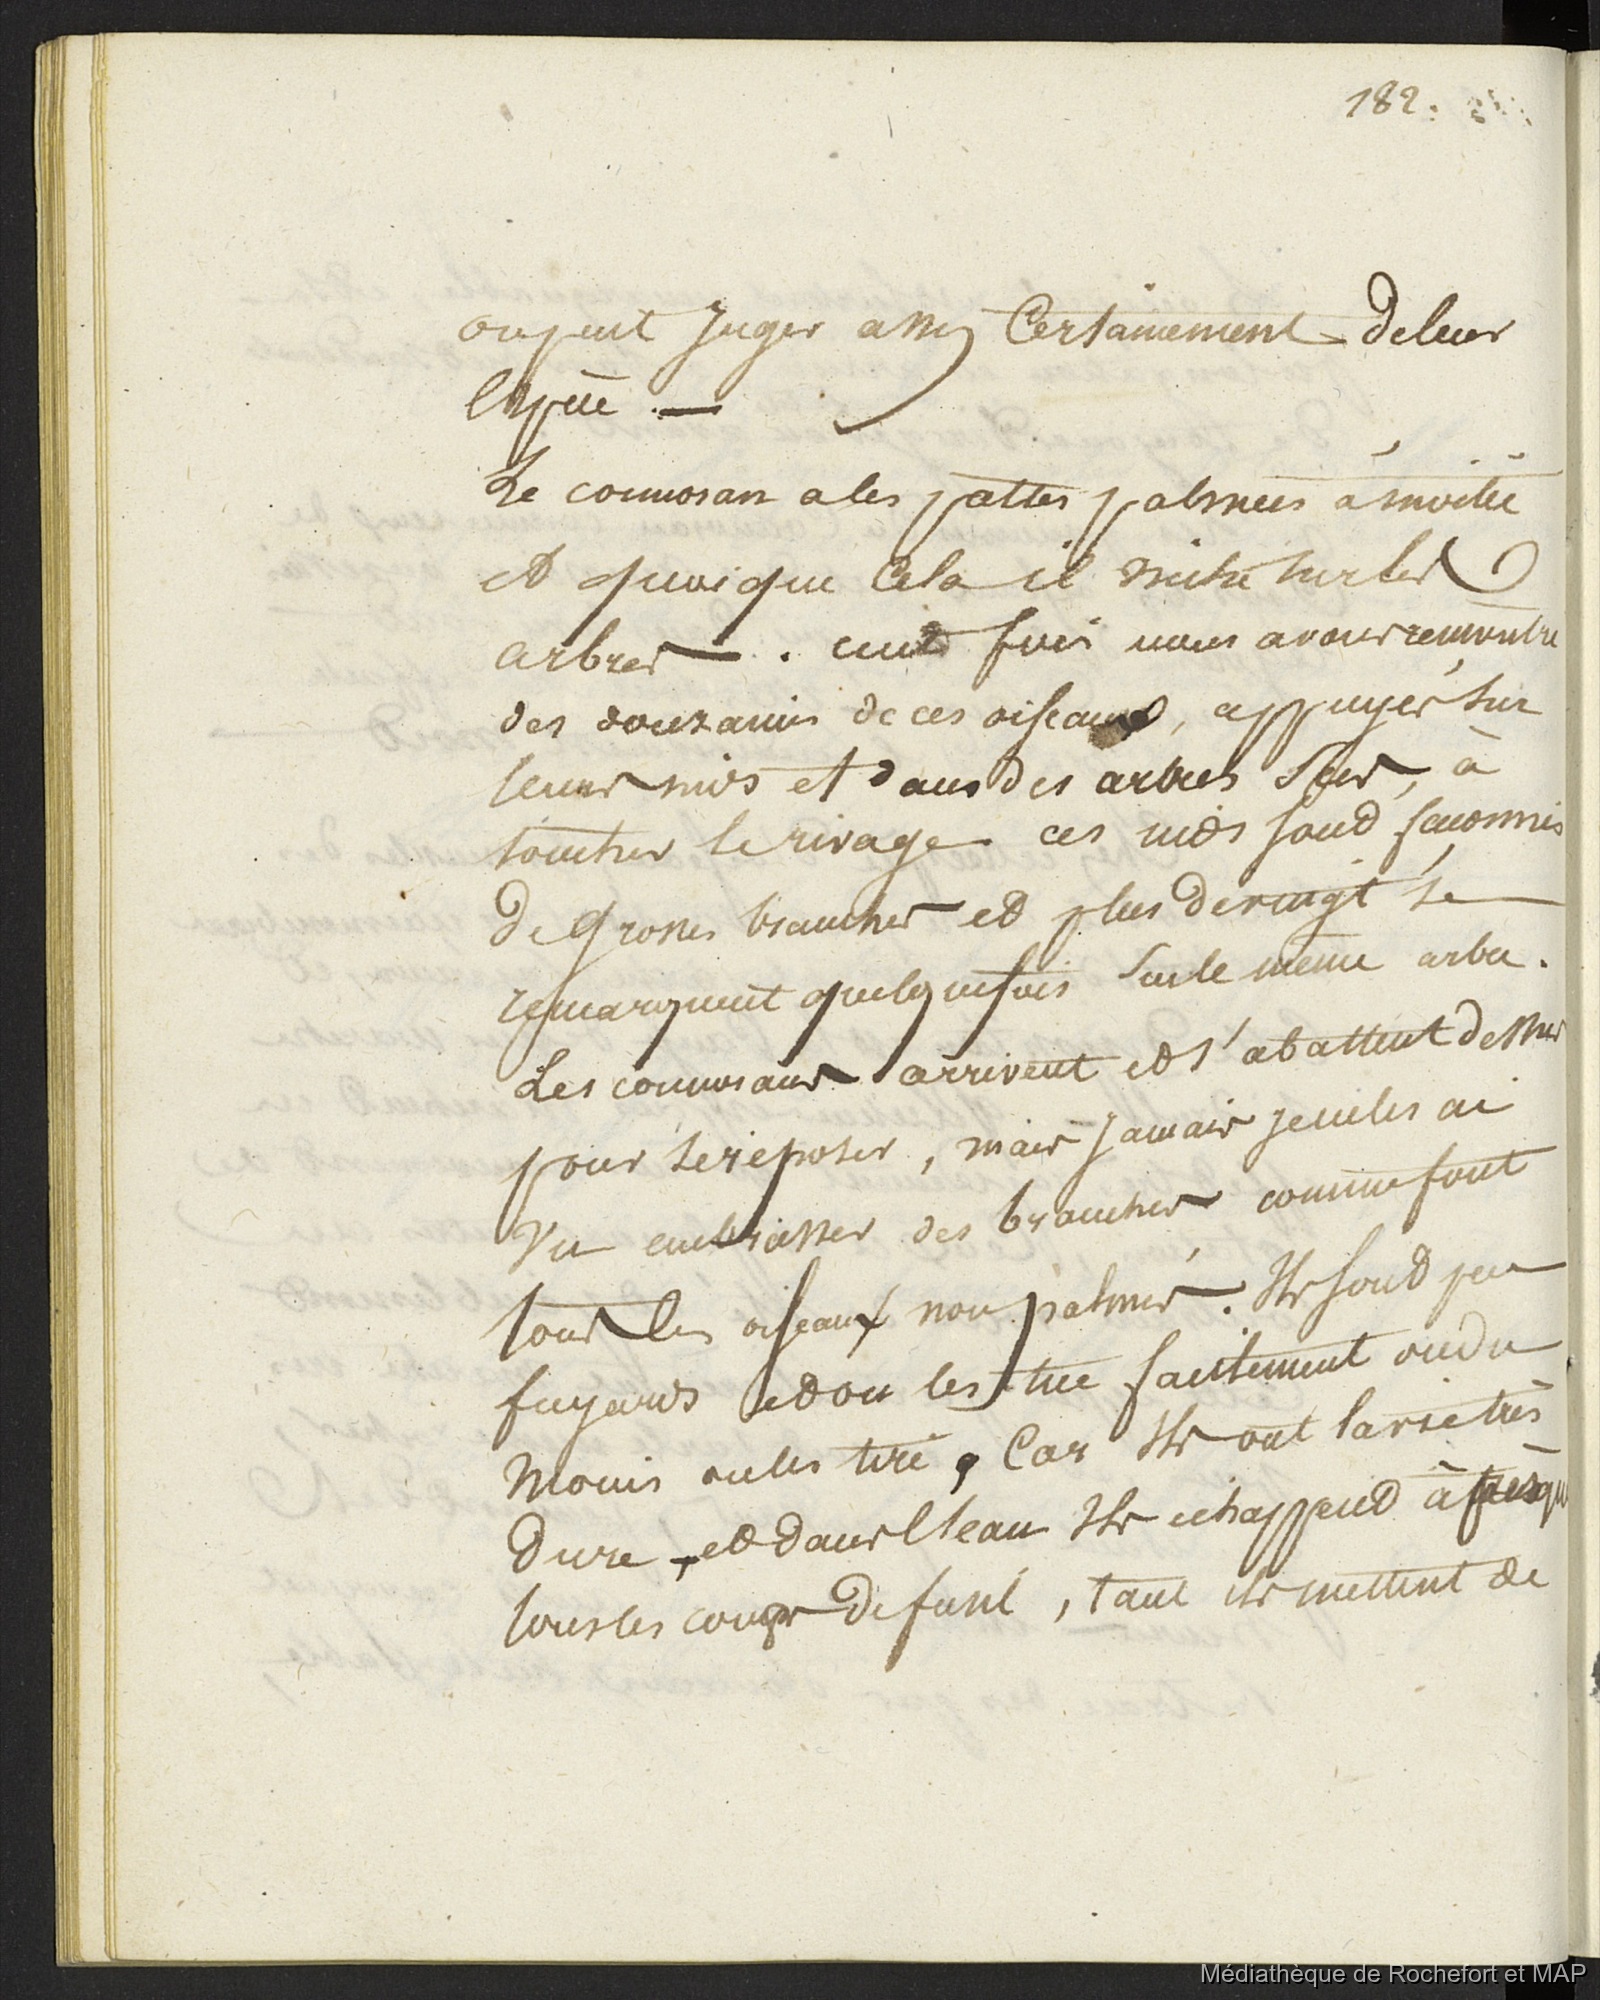 182.
on peut juger assez Certainement de leur
espèce. —
Le cormoran a les pattes palmées à moitié
et quoique Cela il niche sur les
arbres — . cent fois nous avons rencontré
des douzaines de ces oiseaux, appuyés sur
leurs nids et dans des arbres secs, à
toucher le rivage. ces nids sont façonnés
de grosses branches et plus de vingt se
remarquent quelquefois sur le même arbre.
Les cormorans arrivent et s'abattent dessus
pour se réposer, mais jamais je ne les ai
Vu embrasser des branches comme font
tous les oiseaux non palmés. Ils sont peu
fuyards et on les tue facilement ou du
Moins on les tire, Car Ils ont la vie très
Dure, et dans l'eau Ils échappent à presque
tous les coups de fusil, tant ils mettent de
Médiathèque de Rochefort et MAP